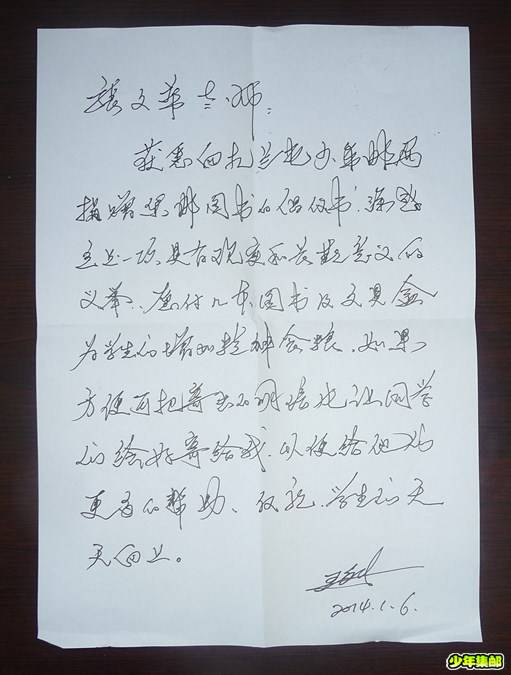 文华老师：
获悉向扎兰屯少年邮局
捐赠集邮图书的倡仪书.深感
这是一项具有现实和长远意义的
义举.寄付几本图书及文具盒
为学生们增加精神食粮.如果
方便可把寄去的明信片让同学
们绘好寄给我.以便给他们
更多的帮助、祝.学生们天
天向上。
2014.1.6.
少年集邮